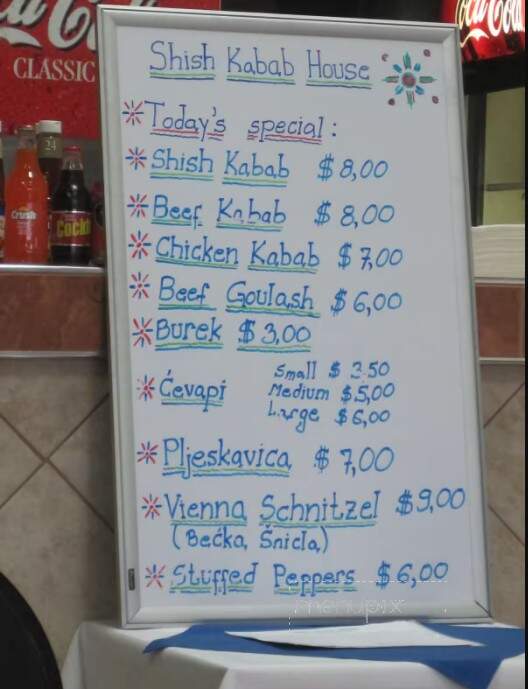 Coca-Cola
CLASSIC
Crush
Shish Kabab House
Today's special:
Shish Kabab $8,00
Beef Kabab $8,00
Chicken Kabab $7,00
Beef Goulash $6,00
Burek $3,00
Ćevapi Small $3.50
Medium $5,00
Large $6,00
Pljeskavica $7,00
Vienna Schnitzel $9,00
(Bečka, Šnicla)
Stuffed Peppers $6,00
menupix